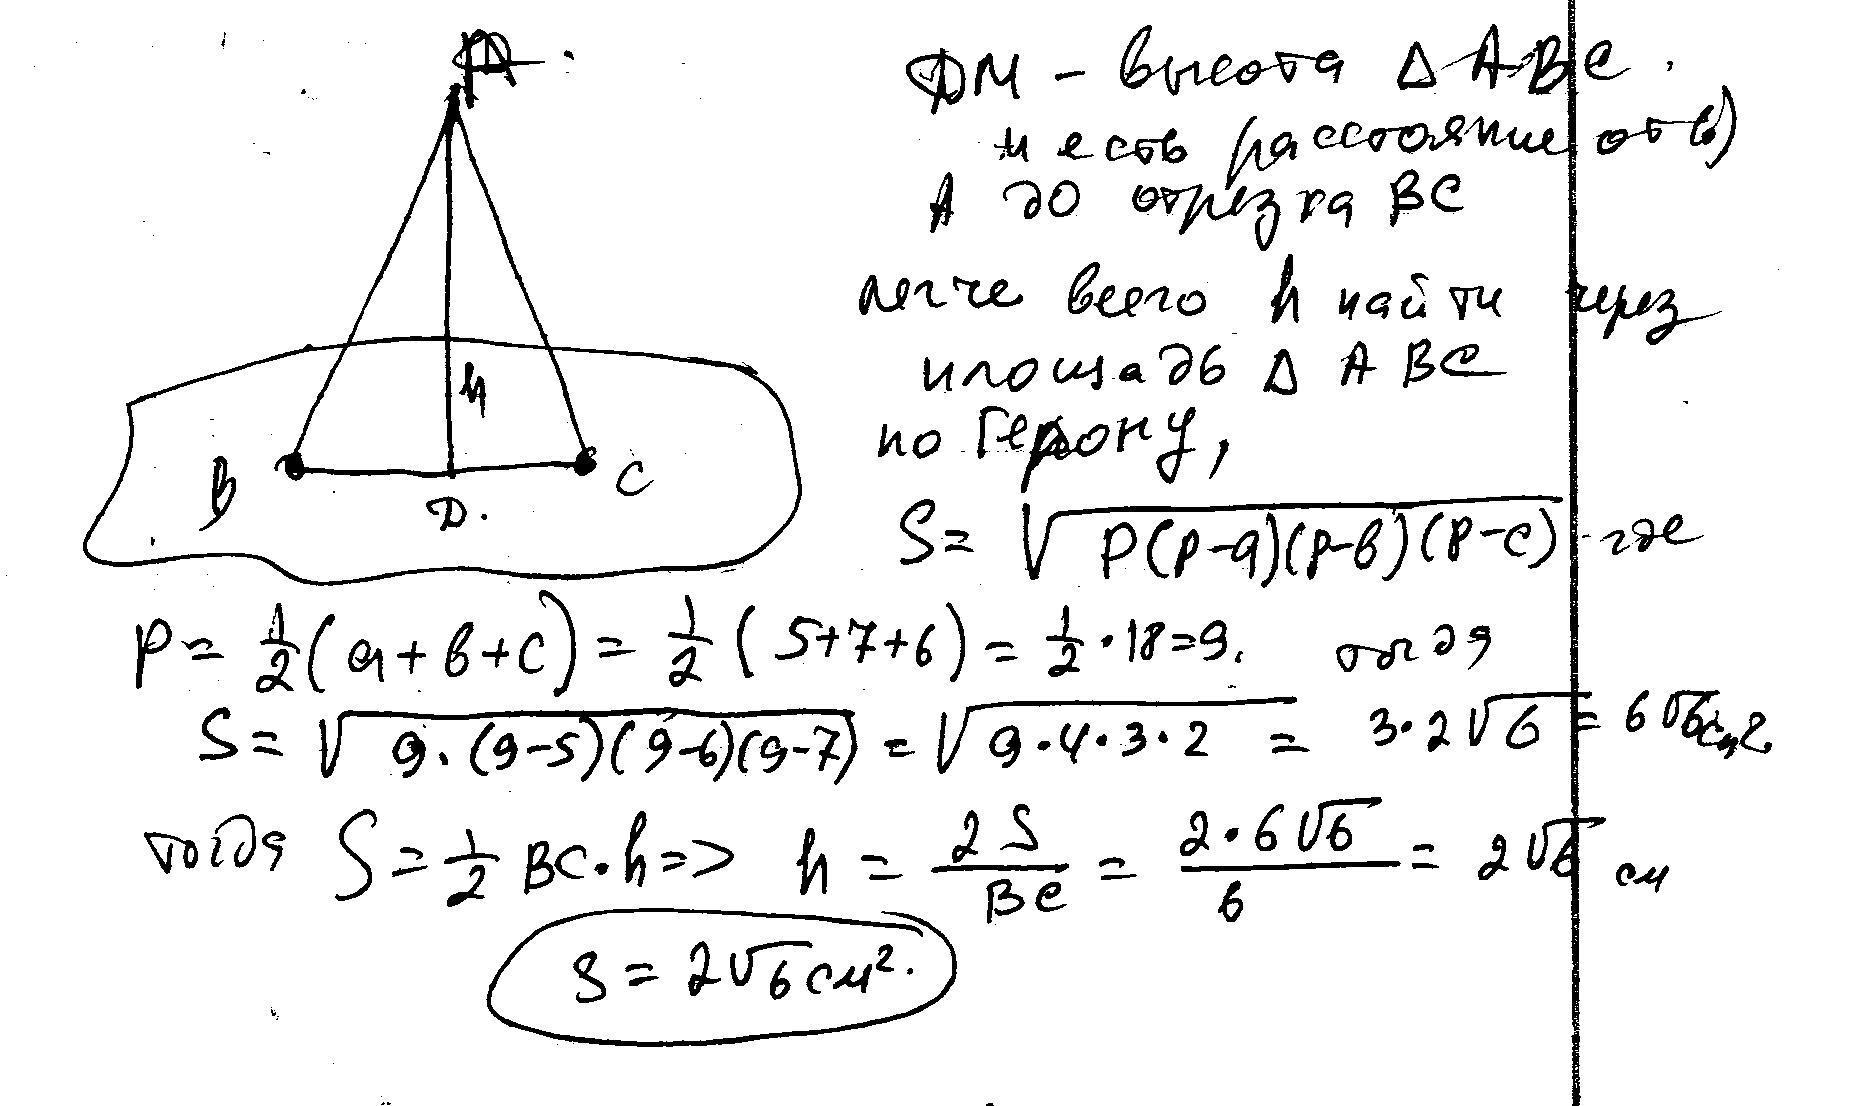 A
h
B
D.
C
DM - высота Δ ABC.
и есть расстояние от
A до отрезка BC
легче всего h найти через
площадь Δ ABC
по Герону,
S = √P(P-a)(P-в)(P-c) где
P = 1/2 (a+в+c) = 1/2 (5+7+6) = 1/2 · 18 = 9. тогда
S = √9·(9-5)(9-6)(9-7) = √9·4·3·2 = 3·2√6 = 6√6 см².
тогда S = 1/2 BC·h => h = 2S/BC = 2·6√6/6 = 2√6 см
S = 2√6 см².